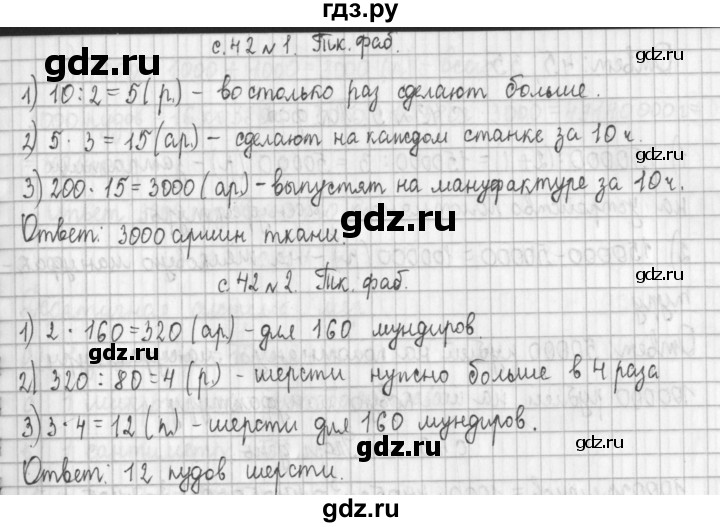 гдз.ру
с. 42 № 1. Тк. фаб.
1) 10 : 2 = 5 (р.) – во столько раз сделают больше.
2) 5 · 3 = 15 (ар.) – сделают на каждом станке за 10 ч.
3) 200 · 15 = 3000 (ар.) – выпустят на мануфактуре за 10 ч.
Ответ: 3000 аршин ткани.
с. 42 № 2. Тк. фаб.
1) 2 · 160 = 320 (ар.) – для 160 мундиров.
2) 320 : 80 = 4 (р.) – шерсти нужно больше в 4 раза
3) 3 · 4 = 12 (п.) – шерсти для 160 мундиров.
Ответ: 12 пудов шерсти.
gdz.ru
gdz.ru
gdz.ru
gdz.ru
gdz.ru
gdz.ru
gdz.ru
gdz.ru
gdz.ru
gdz.ru
gdz.ru
gdz.ru